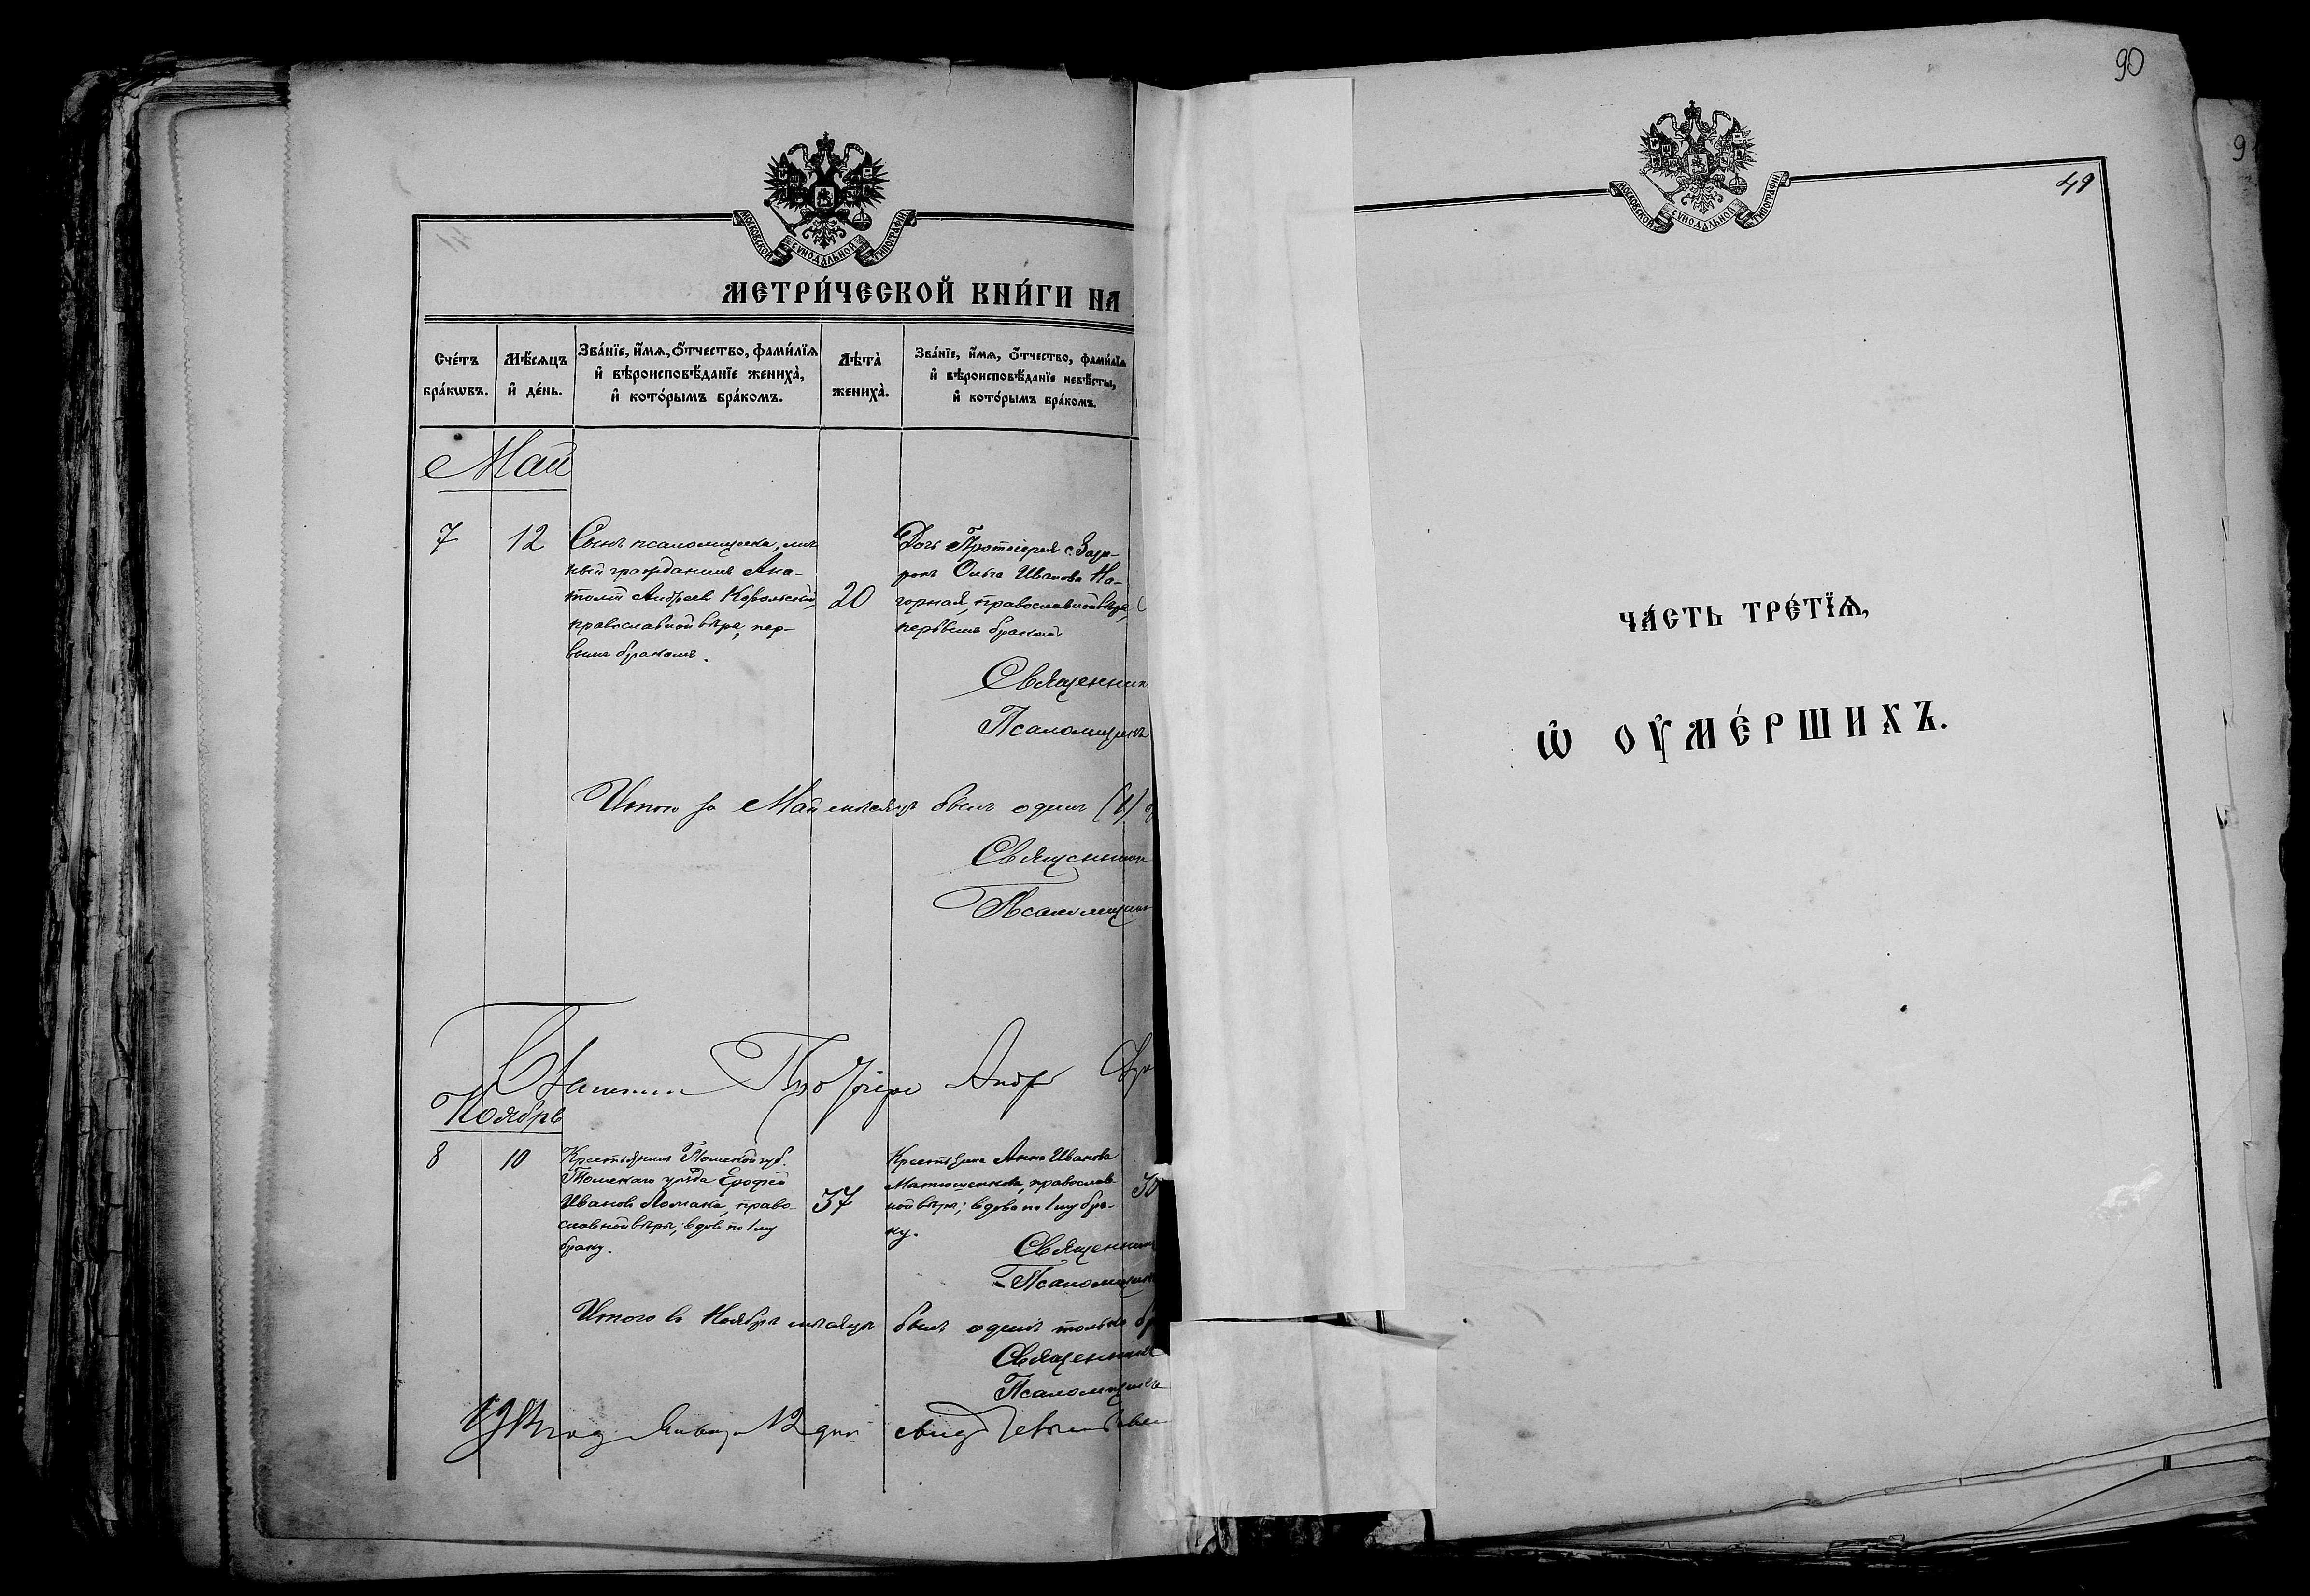 МОСКОВСКОЙ СУНОДАЛЬНОЙ ТИПОГРАФІИ
МЕТРИ́ЧЕСКОЙ КНИ́ГИ НА
Сче́тъ бра́кѡвъ.
Мѣ́сѧцъ и҆ де́нь.
Зва́нїе, и҆́мѧ, ѻ҆́тчество, фами́лїѧ
и҆ вѣроисповѣ́данїе жениха̀,
и҆ кото́рымъ бра́комъ.
Лѣта̀ жениха̀.
Зва́нїе, и҆́мѧ, ѻ҆́тчество, фами́лїѧ
и҆ вѣроисповѣ́данїе невѣ́сты,
и҆ кото́рымъ бра́комъ.
Май
7
12
Сынъ псаломщика, лич
ный гражданинъ Ана-
толій Андреевъ
православной вѣры, пер-
вымъ бракомъ.
20
Дочь Протоіерея с.
Ольга Иванова На-
горная, православной вѣры,
первымъ бракомъ
Священник
Псаломщикъ
Итого въ Май мѣсяцѣ былъ одинъ (1)
Священник
Псаломщик
Благочин Протоіере Андр
Ноябрь
8
10
Крестьянинъ Томской губ.
Томскаго уѣзда Ерофей
Ивановъ Ломака, право-
славной вѣры, вдовъ по 1му
браку.
37
Крестьянка Анна Иванова
Матюшенкова, православ-
ной вѣры; вдова по 1му бра-
ку.
30
Священник
Псаломщик
Итого въ Ноябрѣ мѣсяцѣ былъ одинъ только
Священник
Псаломщикъ
год. Января 12 дня
90
МОСКОВСКОЙ СУНОДАЛЬНОЙ ТИПОГРАФІИ
49
ЧА́СТЬ ТРЕ́ТЇѦ,
Ѡ҆ ОУ҆МЕ́РШИХЪ.